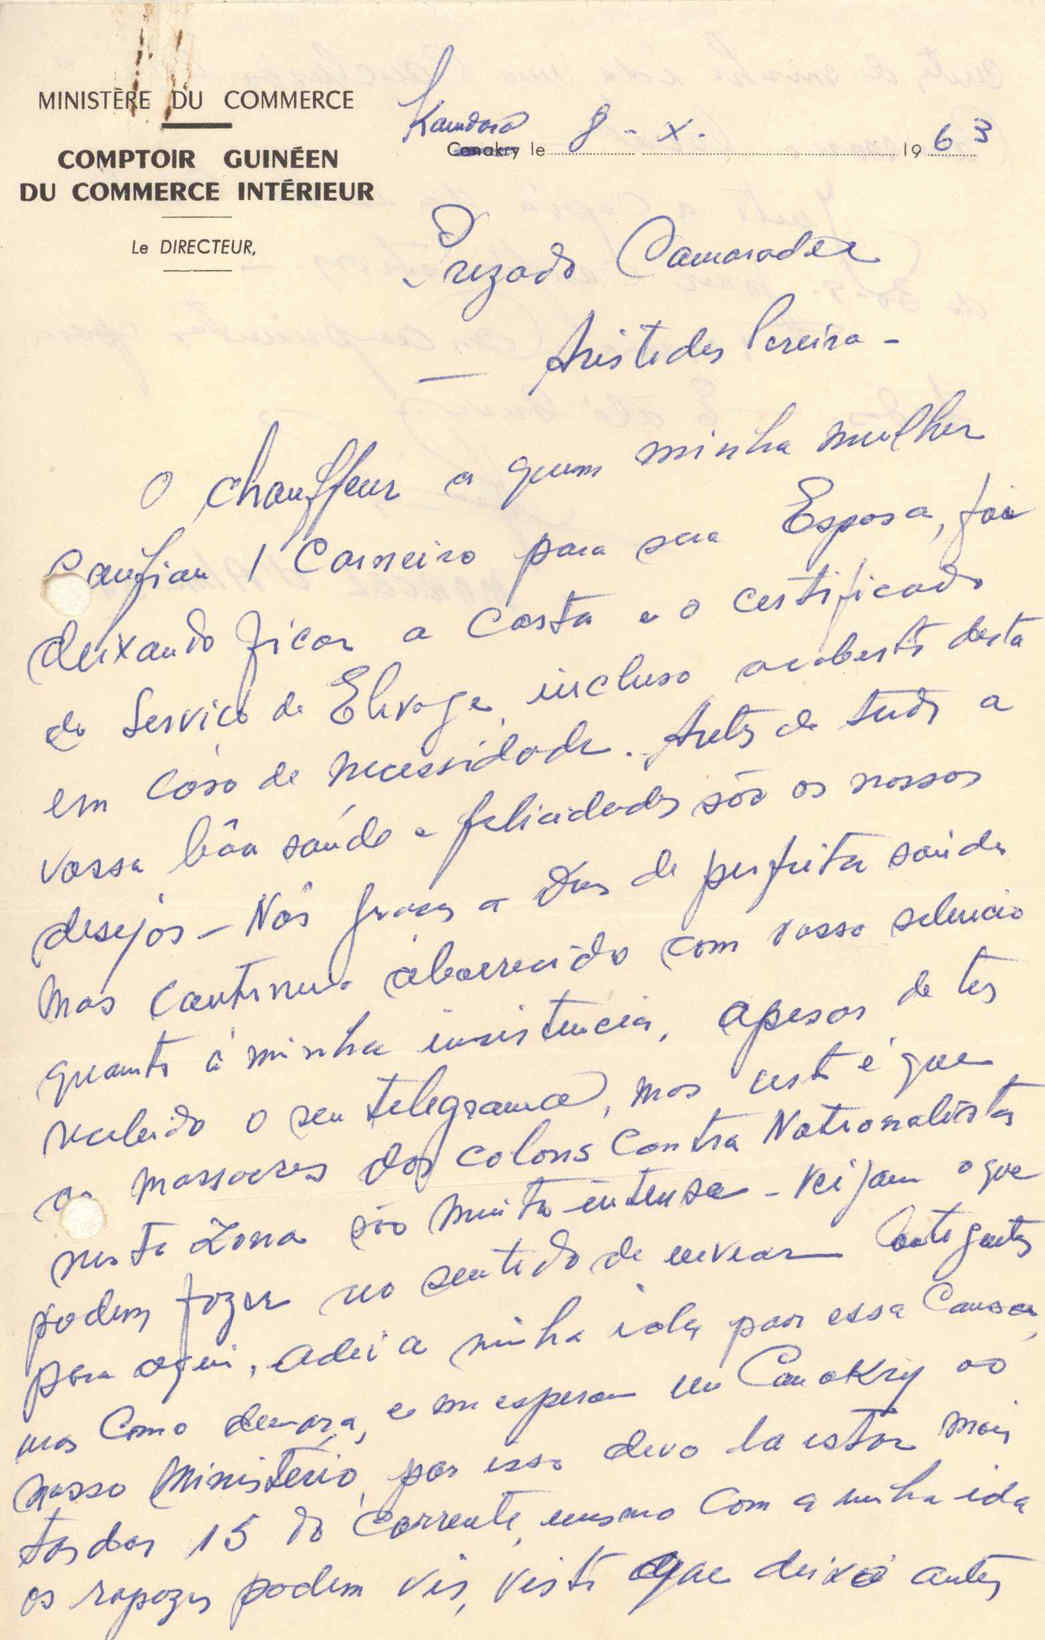 MINISTÈRE DU COMMERCE
COMPTOIR GUINÉEN
DU COMMERCE INTÉRIEUR
Le DIRECTEUR,
Kandara
Conakry le 8 - X - 1963
Prezado Camarada
Aristides Pereira -
O chauffeur a quem minha mulher
confiau 1 Carneiro para sua Esposa, foi
deixando ficar a carta e o certificado
do Serviço de Elevage, incluso a coberto desta
em caso de necessidade. Antes de tudo a
vossa bôa saúde e felicidades são os nossos
desejos - Nós graças a Deus de perfeita saúde
mas continuo aborrecido com vosso selencio
quanto á minha insistencia, apesar de ter
recebido o seu telegrama, mas visto é que
os massacres dos colons contra Nationalistas
nesta Zona são muito intensa - Veijam o que
podem fazer no sentido de enviar gentes
para aqui, adei a minha ida por essa Causa,
mas como demora, e me esperam em Conakry ao
nosso Ministério, por isso devo la estar mais
tardar 15 do corrente, mesmo com a minha ida
os rapazes podem vir, visto que deixo antes